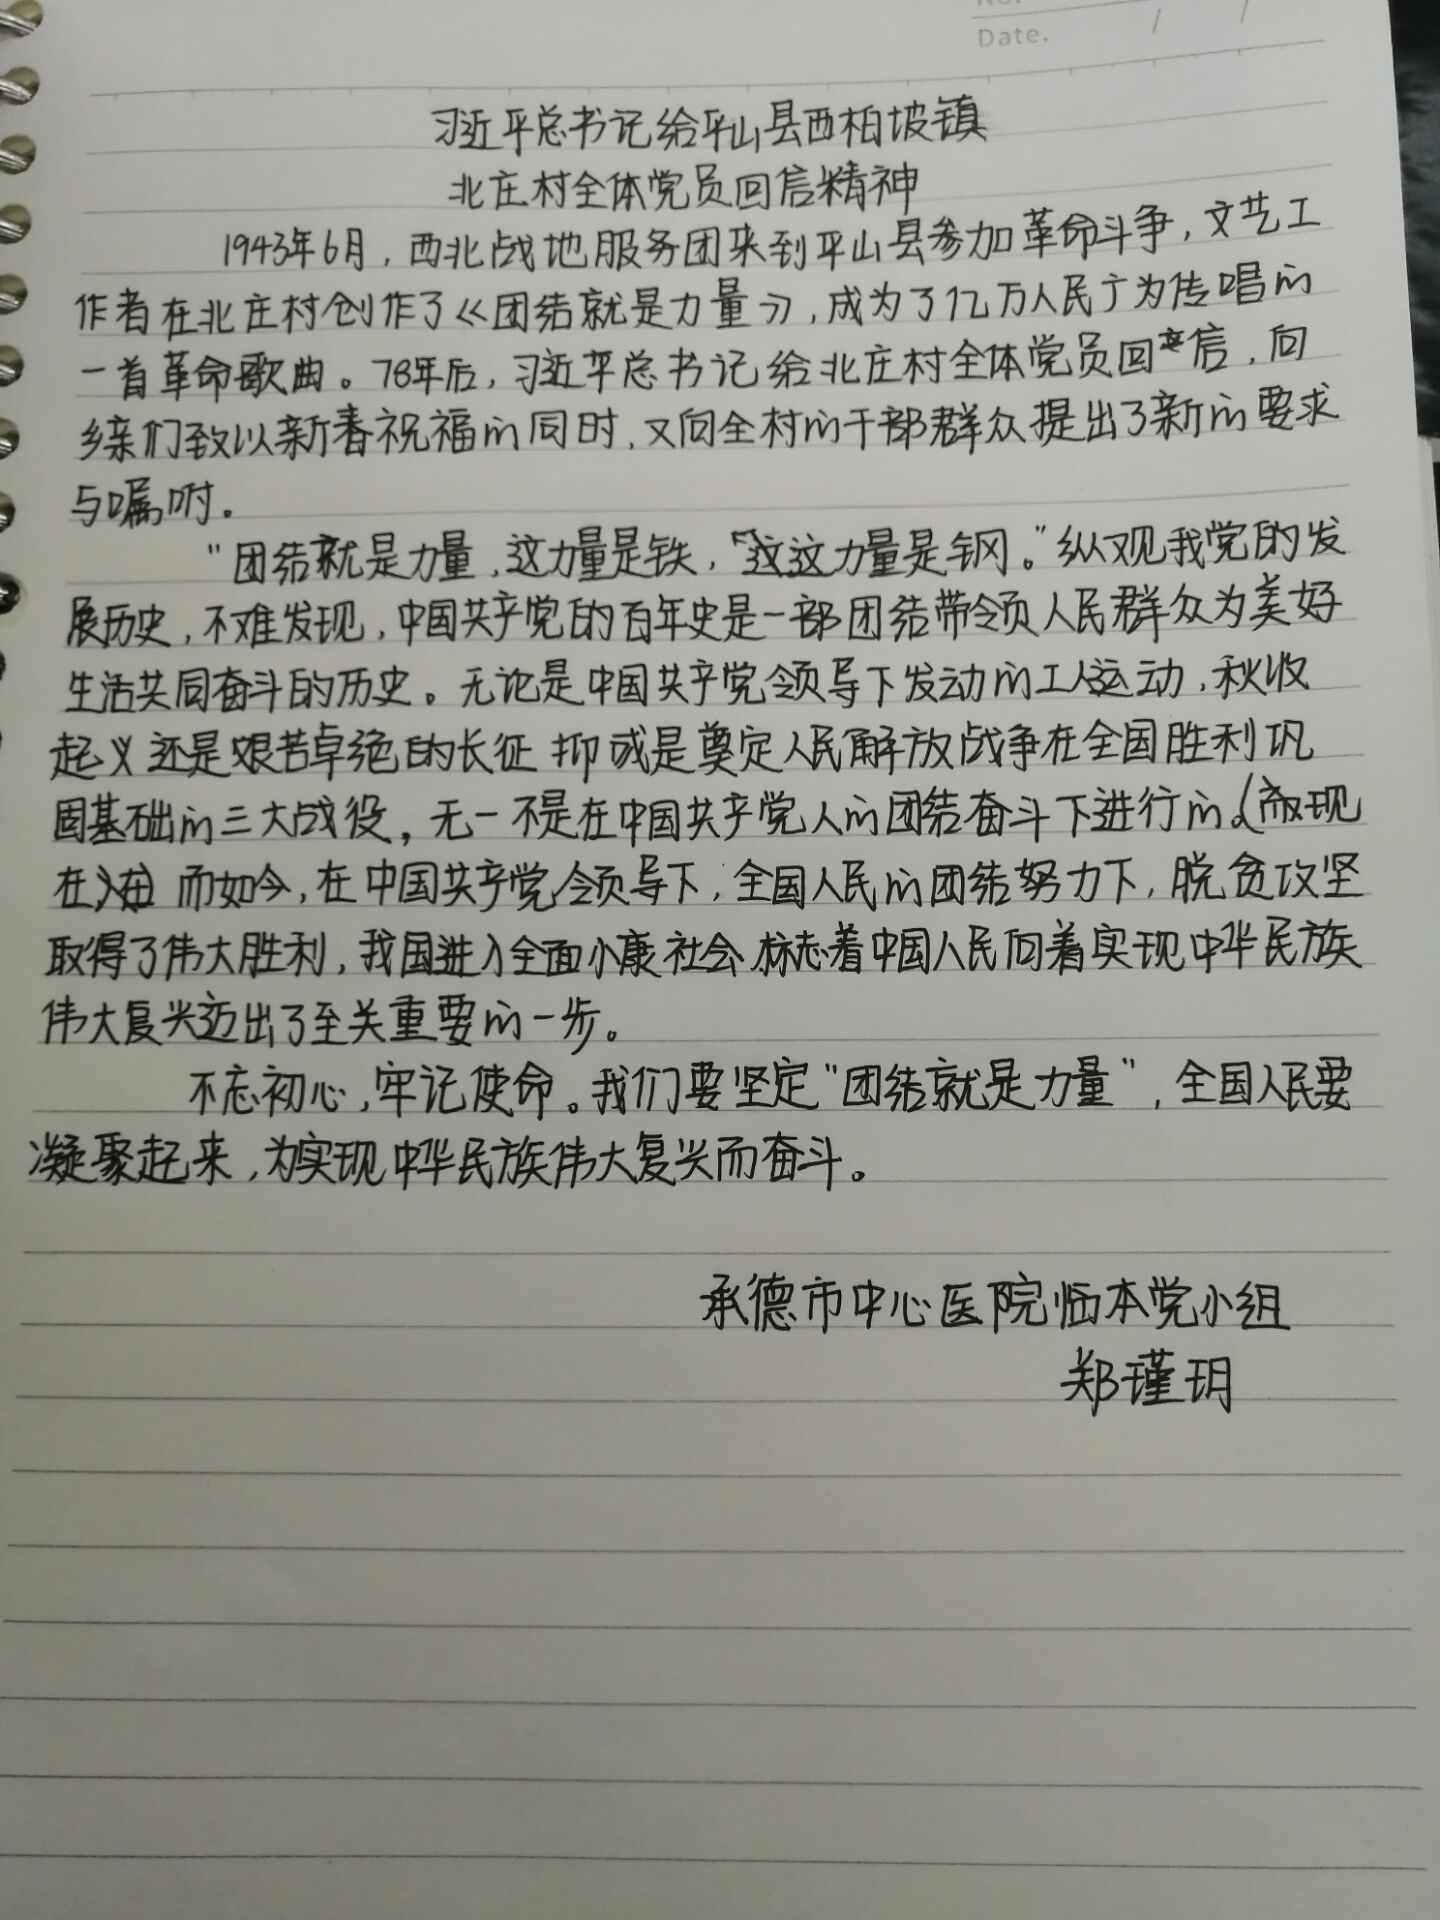 No.
Date. / /
习近平总书记给平山县西柏坡镇
北庄村全体党员回信精神
1943年6月，西北战地服务团来到平山县参加革命斗争，文艺工
作者在北庄村创作了《团结就是力量》，成为了亿万人民广为传唱的
一首革命歌曲。78年后，习近平总书记给北庄村全体党员回信，向
乡亲们致以新春祝福的同时，又向全村的干部群众提出了新的要求
与嘱咐。
"团结就是力量，这力量是铁，这力量是钢。"纵观我党的发
展历史，不难发现，中国共产党的百年史是一部团结带领人民群众为美好
生活共同奋斗的历史。无论是中国共产党领导下发动的工人运动，秋收
起义还是艰苦卓绝的长征抑或是奠定人民解放战争在全国胜利巩
固基础的三大战役，无一不是在中国共产党人的团结奋斗下进行的。(现
在)而如今，在中国共产党领导下，全国人民的团结努力下，脱贫攻坚
取得了伟大胜利，我国进入全面小康社会，标志着中国人民向着实现中华民族
伟大复兴迈出了至关重要的一步。
不忘初心，牢记使命。我们要坚定"团结就是力量"，全国人民要
凝聚起来，为实现中华民族伟大复兴而奋斗。
承德市中心医院临本党小组
郑瑾玥